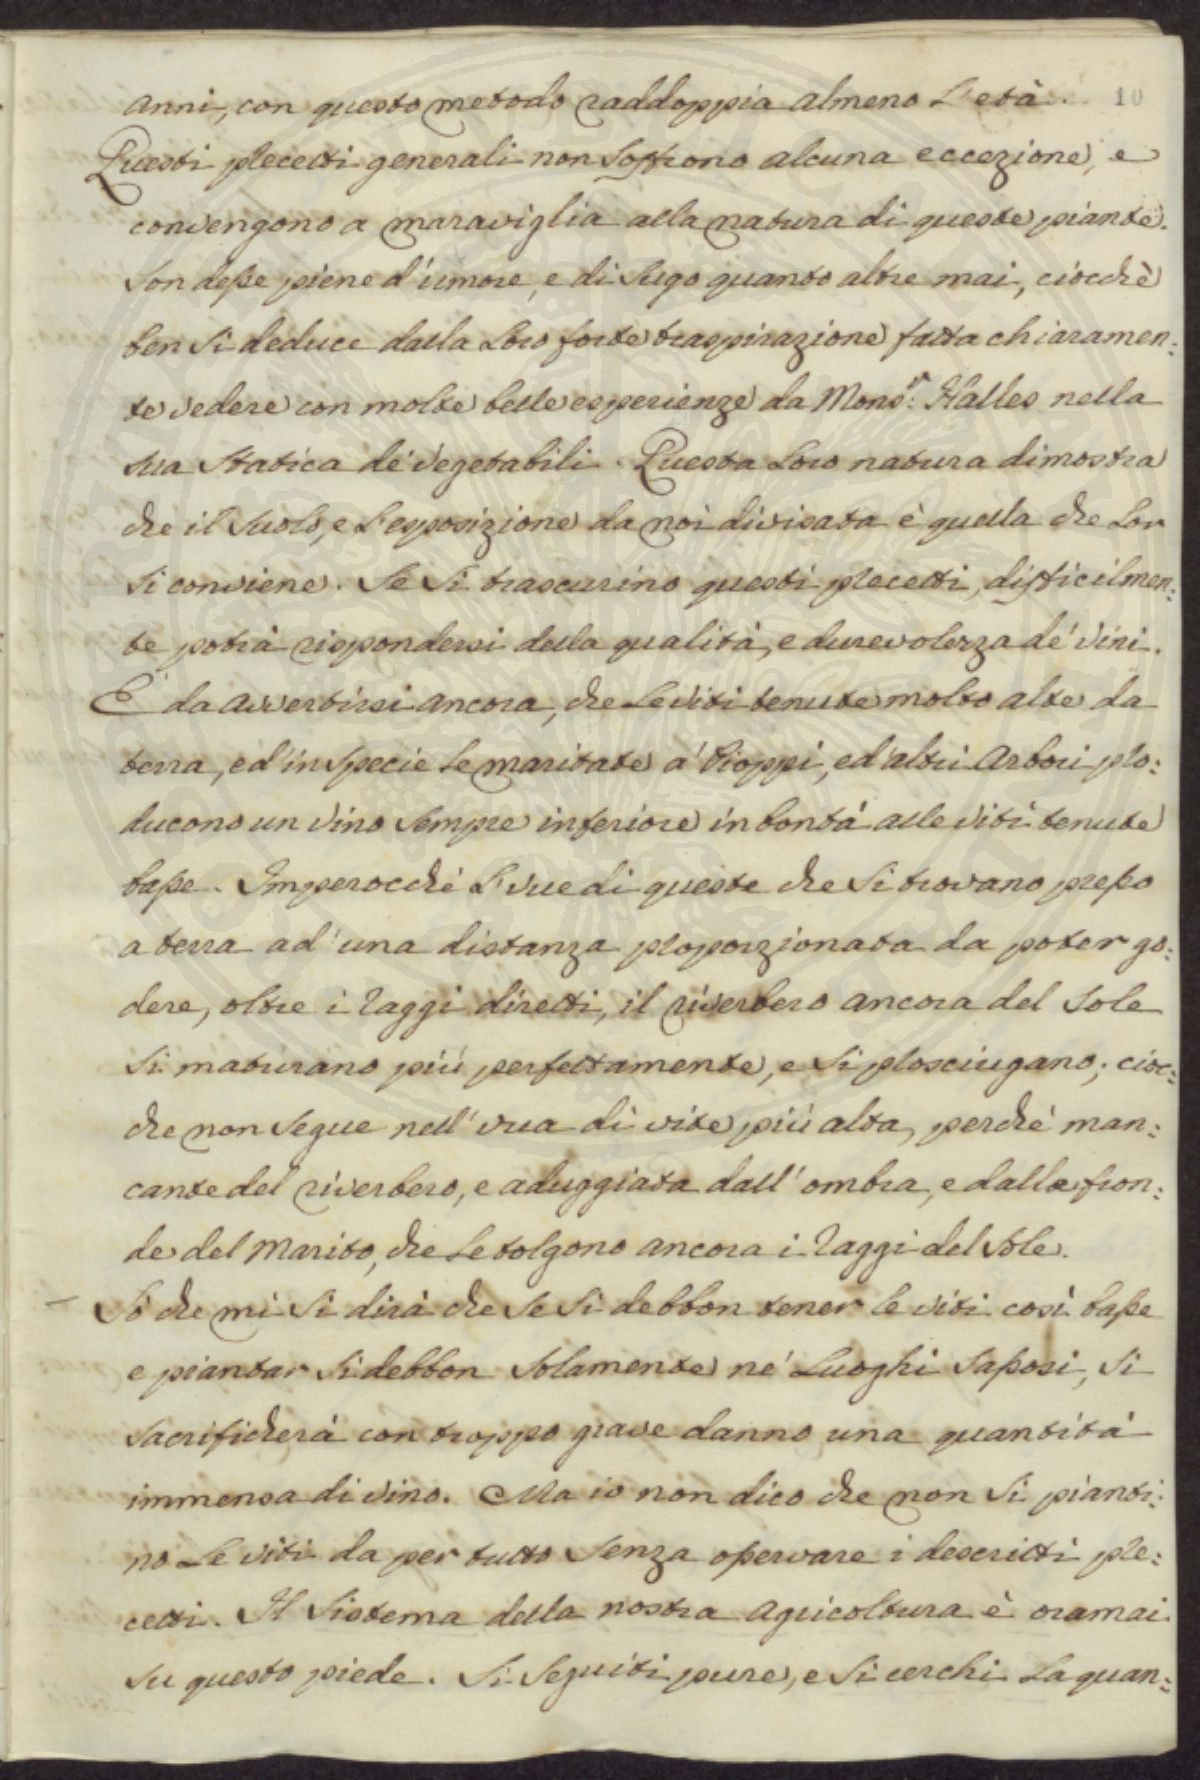 anni, con questo metodo raddoppia almeno L'età. 10
Questi precetti generali non soffrono alcuna eccezione, e
convengono a maraviglia alla natura di queste piante.
Son desse piene d'umore, e di sugo quanto altre mai, ciocchè
ben si deduce dalla loro forte traspirazione fatta chiaramen:
te vedere con molte belle esperienze da Mons.r Halles nella
sua Statica de' Vegetabili. Questa loro natura dimostra
che il suolo, e l'esposizione da noi divisata è quella che lor
si conviene. Se si trascurino questi precetti, difficilmen:
te potrà rispondersi della qualità, e durevolezza de' Vini.
E' da avvertirsi ancora, che le viti tenute molto alte da
terra, ed' in specie le maritate a' Pioppi, ed' altri Arbori pro:
ducono un vino sempre inferiore in bontà alle viti tenute
basse. Imperocchè l'uve di queste che si trovano presso
a terra ad' una distanza proporzionata da poter go:
dere, oltre i raggi diretti, il riverbero ancora del Sole
si maturano più perfettamente, e si prosciugano; cioc:
che non segue nell' uva di vite più alta, perchè man:
cante del riverbero, e aduggiata dall' ombra, e dalle fron:
de del Marito, che le tolgono ancora i raggi del Sole.
Sò che mi si dirà che se si debbon tener le viti così basse
e piantar si debbon solamente ne' Luoghi sassosi, si
sacrificherà con troppo grave danno una quantità
immensa di vino. Ma io non dico che non si pianti:
no le viti da per tutto senza osservare i descritti pre:
cetti. Il Sistema della nostra agricoltura è oramai
su questo piede. Si seguiti pure, e si cerchi la quan: